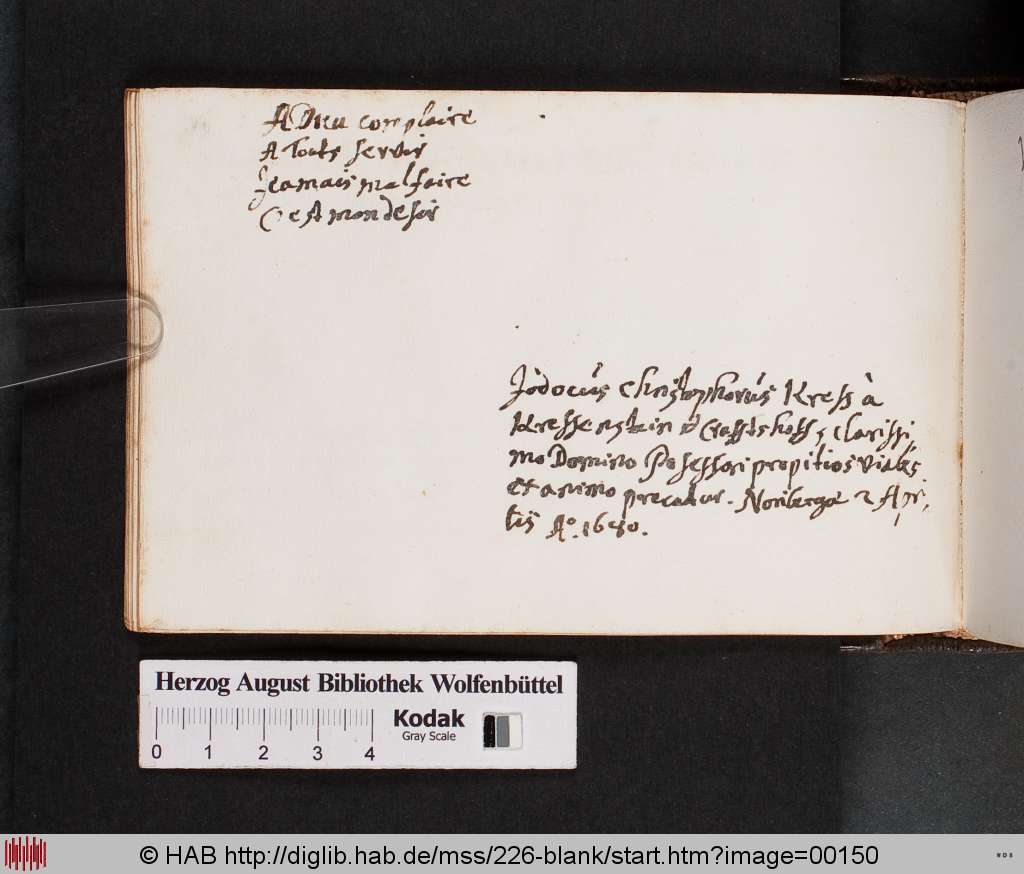 A Dieu complaire
A Touts servir
Jeamais malfaire
C'est mon desir
Jodocús Christophorús Kress à
Kressenstein & Crafftshoff, Clarissi,,
mo Domino Possessori propitios viales
et animo precatur. Noriberga 2 Apr,,
lis Aº. 1680.
Herzog August Bibliothek Wolfenbüttel
Kodak
Gray Scale
0 1 2 3 4
© HAB http://diglib.hab.de/mss/226-blank/start.htm?image=00150
WDB